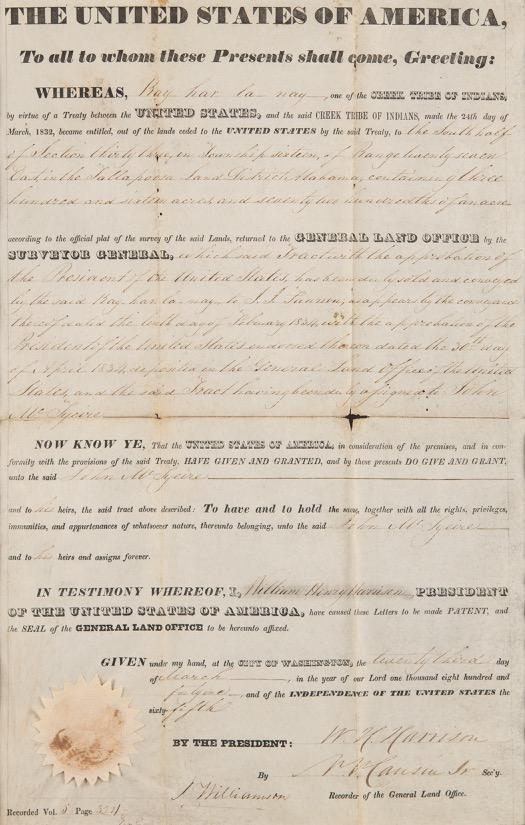 THE UNITED STATES OF AMERICA,
To all to whom these Presents shall come, Greeting:
WHEREAS, Bay har la nay, one of the CREEK TRIBE OF INDIANS,
by virtue of a Treaty between the UNITED STATES, and the said CREEK TRIBE OF INDIANS, made the 24th day of
March, 1832, became entitled, out of the lands ceded to the UNITED STATES by the said Treaty, to the South half
of Section thirty three, in Township sixteen, of Range twenty seven
East, in the Tallapoosa Land District, Alabama, containing three
hundred and sixteen acres and seventy two hundredths of an acre
according to the official plat of the survey of the said Lands, returned to the GENERAL LAND OFFICE by the
SURVEYOR GENERAL, which said Tract with the approbation of
the President of the United States, has been duly sold and conveyed
by the said Bay har la nay to as appears by the conveyance
thereof dated the tenth day of February 1834, with the approbation of the
President of the United States endorsed thereon dated the 30th day
of April 1834 deposited in the General Land Office of the United
States, and the said Tract having been duly assigned to John
McIntyre
NOW KNOW YE, That the UNITED STATES OF AMERICA, in consideration of the premises, and in con-
formity with the provisions of the said Treaty, HAVE GIVEN AND GRANTED, and by these presents DO GIVE AND GRANT,
unto the said John
and to his heirs, the said tract above described: To have and to hold the same, together with all the rights, privileges,
immunities, and appurtenances of whatsoever nature, thereunto belonging, unto the said John
and to his heirs and assigns forever.
IN TESTIMONY WHEREOF, I, William Henry Harrison, PRESIDENT
OF THE UNITED STATES OF AMERICA, have caused these Letters to be made PATENT, and
the SEAL of the GENERAL LAND OFFICE to be hereunto affixed.
GIVEN under my hand, at the CITY OF WASHINGTON, the twenty third day
of March, in the year of our Lord one thousand eight hundred and
forty one, and of the INDEPENDENCE OF THE UNITED STATES the
sixty-fifth
BY THE PRESIDENT: W. H. Harrison
By Sec'y.
J Williamson Recorder of the General Land Office.
Recorded Vol. 5 Page